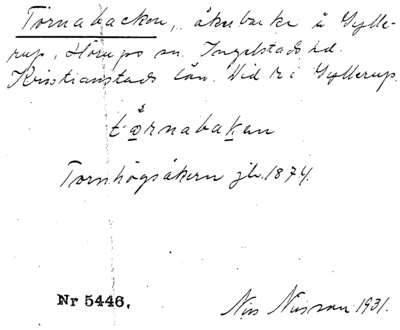 Törnabacken, åkerbacke å Gylle-
rup, Hörups sn. Ingelstads hd.
Kristianstads län. Vid r i Gyllerup.
tørnabakan
Tornhögsåkern jb. 1874.
Nr 5446.
Nils Nilsson 1931.